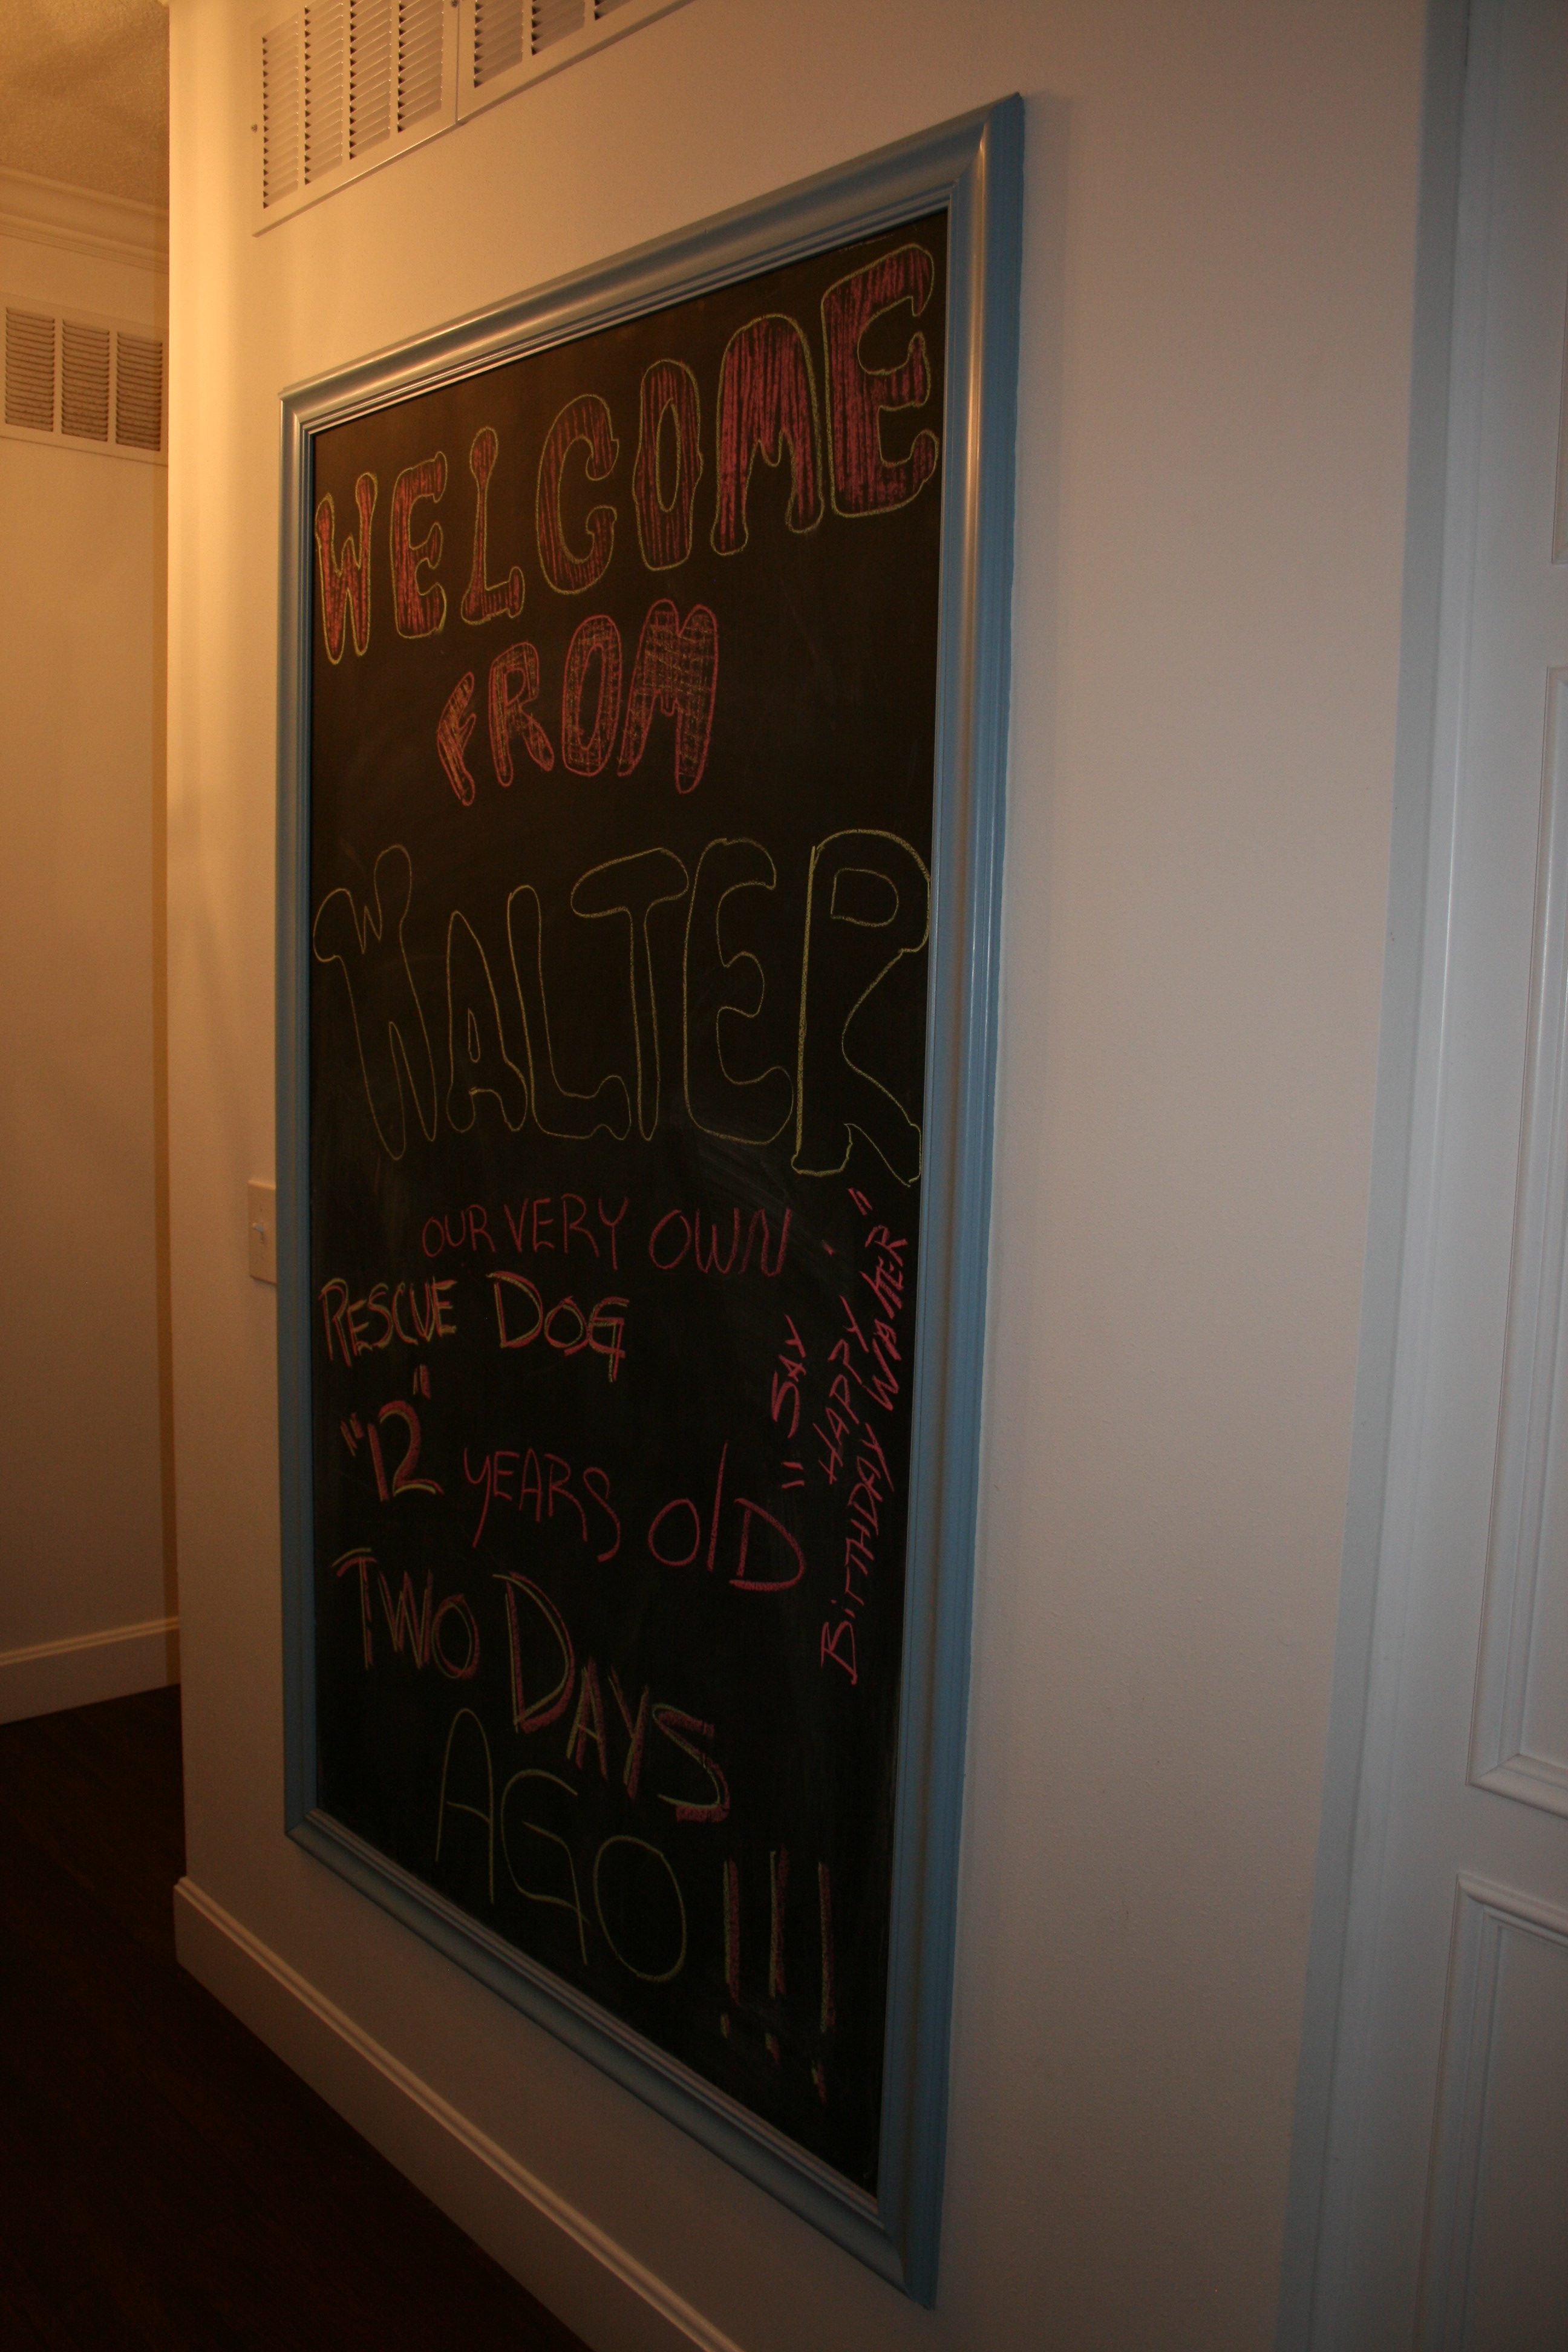 WELCOME
FROM
WALTER
OUR VERY OWN
RESCUE DOG
"12" YEARS OlD
TWO DAYS
AGO !!!
"SAY
HAPPY
BiRTHDAY WAlTER"